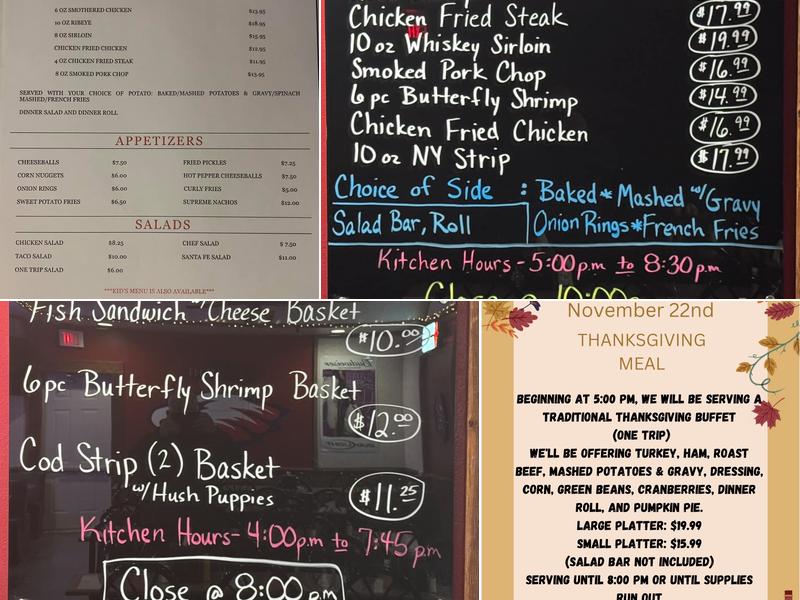 6 OZ SMOTHERED CHICKEN $13.95
10 OZ RIBEYE $18.95
8 OZ SIRLOIN $15.95
CHICKEN FRIED CHICKEN $12.95
4 OZ CHICKEN FRIED STEAK $11.95
8 OZ SMOKED PORK CHOP $13.95
SERVED WITH YOUR CHOICE OF POTATO: BAKED/MASHED POTATOES & GRAVY/SPINACH
MASHED/FRENCH FRIES
DINNER SALAD AND DINNER ROLL
APPETIZERS
CHEESEBALLS $7.50 FRIED PICKLES $7.25
CORN NUGGETS $6.00 HOT PEPPER CHEESEBALLS $7.50
ONION RINGS $6.00 CURLY FRIES $5.00
SWEET POTATO FRIES $6.50 SUPREME NACHOS $12.00
SALADS
CHICKEN SALAD $8.25 CHEF SALAD $ 7.50
TACO SALAD $10.00 SANTA FE SALAD $11.00
ONE TRIP SALAD $6.00
***KID'S MENU IS ALSO AVAILABLE***
Chicken Fried Steak $17.99
10 oz Whiskey Sirloin $19.99
Smoked Pork Chop $16.99
6 pc Butterfly Shrimp $14.99
Chicken Fried Chicken $16.99
10 oz NY Strip $17.99
Choice of Side : Baked * Mashed w/Gravy
Salad Bar, Roll Onion Rings * French Fries
Kitchen Hours - 5:00p.m to 8:30p.m
Close @ 10:00
Fish Sandwich w/Cheese Basket
$10.00
6 pc Butterfly Shrimp Basket
$12.00
Cod Strip (2) Basket
w/Hush Puppies $11.25
Kitchen Hours- 4:00p.m to 7:45pm
Close @ 8:00 p.m
November 22nd
THANKSGIVING
MEAL
BEGINNING AT 5:00 PM, WE WILL BE SERVING A
TRADITIONAL THANKSGIVING BUFFET
(ONE TRIP)
WE'LL BE OFFERING TURKEY, HAM, ROAST
BEEF, MASHED POTATOES & GRAVY, DRESSING,
CORN, GREEN BEANS, CRANBERRIES, DINNER
ROLL, AND PUMPKIN PIE.
LARGE PLATTER: $19.99
SMALL PLATTER: $15.99
(SALAD BAR NOT INCLUDED)
SERVING UNTIL 8:00 PM OR UNTIL SUPPLIES
RUN OUT